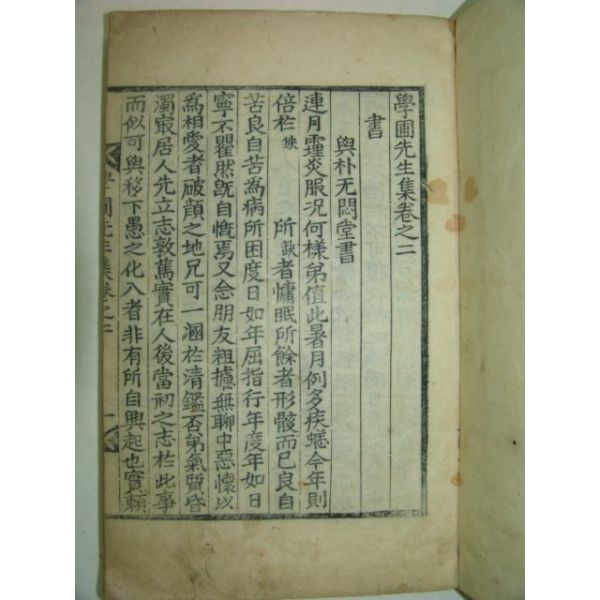 學圃先生集卷之二
書
與朴无悶堂書
連月霾炎服况何樣弟值此暑月例多疾恙今年則
倍於缺　所缺者慵眠所餘者形骸而已良自
苦良自苦爲病所困度日如年屈指行年度年如日
寧不瞿然旣自慨焉又念朋友粗據無聊中惡懷以
爲相愛者破顔之地兄可一涵於清鑑否弟氣質昏
濁最居人先立志敦篤實在人後當初之志於此事
而似可與移下愚之化入者非有所自興起也實賴
學圃先生集卷之二
一